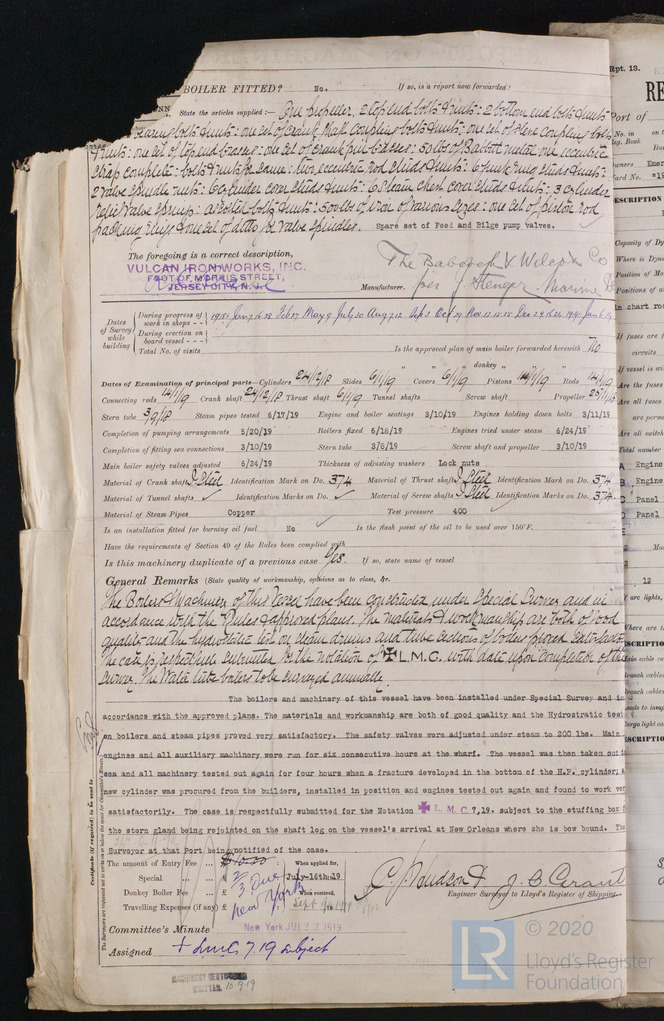 BOILER FITTED? No. If so, is a report now forwarded?
State the articles supplied:— One propeller, 2 top end bolts & nuts: 2 bottom end bolts & nuts
bearing bolts & nuts: one set of crank shaft coupling bolts & nuts: one set of coupling bolts
& nuts: one set of top end brasses: one set of crank pin brasses: 50 lbs of Babbitt metal one eccentric
strap complete: bolts & nuts for same: two eccentric rod studs & nuts: 6 junk ring studs & nuts:
2 valve spindle nuts: 6 cylinder cover studs & nuts: 6 steam chest cover studs & nuts: 3 cylinder
relief valve springs: assorted bolts & nuts: 500 lbs of iron of various sizes: one set of piston rod
packing rings & one set of ditto for valve spindles. Spare set of Feed and Bilge pump valves.
The foregoing is a correct description,
VULCAN IRON WORKS, INC.
FOOT OF MORRIS STREET,
JERSEY CITY, N.J.
The Babcock & Wilcox Co
Manufacturer. per J Stenger Marine
Dates of Survey while building
During progress of work in shops - -
During erection on board vessel - - -
Total No. of visits
Is the approved plan of main boiler forwarded herewith No
" " " donkey " " "
Dates of Examination of principal parts—Cylinders 24/12/18 Slides 6/1/19 Covers 6/1/19 Pistons 14/1/19 Rods 14/1/19
Connecting rods 14/1/19 Crank shaft 24/12/18 Thrust shaft 6/1/19 Tunnel shafts Screw shaft Propeller
Stern tube 3/9/18 Steam pipes tested 6/17/19 Engine and boiler seatings 3/10/19 Engines holding down bolts 3/11/19
Completion of pumping arrangements 5/20/19 Boilers fixed 6/18/19 Engines tried under steam 6/24/19
Completion of fitting sea connections 3/10/19 Stern tube 3/8/19 Screw shaft and propeller 3/10/19
Main boiler safety valves adjusted 6/24/19 Thickness of adjusting washers Lock nuts
Material of Crank shaft Steel Identification Mark on Do. 374 Material of Thrust shaft Steel Identification Mark on Do. 374
Material of Tunnel shafts ✓ Identification Marks on Do. ✓ Material of Screw shafts Steel Identification Marks on Do. 374
Material of Steam Pipes Copper Test pressure 400
Is an installation fitted for burning oil fuel No Is the flash point of the oil to be used over 150°F.
Have the requirements of Section 49 of the Rules been complied with
Is this machinery duplicate of a previous case Yes. If so, state name of vessel
General Remarks (State quality of workmanship, opinions as to class, &c.
The Boilers & Machinery of this Vessel have been constructed under Special Survey and in
accordance with the Rules & approved plans. The materials & workmanship are both of good
quality and the hydrostatic test on steam drums and tube sections of boilers proved satisfactory.
The case is respectfully submitted for the notation of ✠ L.M.C. with date upon completion of the
survey. The Water tube boilers to be surveyed annually.
The boilers and machinery of this vessel have been installed under Special Survey and in
accordance with the approved plans. The materials and workmanship are both of good quality and the Hydrostratic test
on boilers and steam pipes proved very satisfactory. The safety valves were adjusted under steam to 200 lbs. Main
engines and all auxiliary machinery were run for six consecutive hours at the wharf. The vessel was then taken out to
sea and all machinery tested out again for four hours when a fracture developed in the bottom of the H.P. cylinder; A
new cylinder was procured from the builders, installed in position and engines tested out again and found to work very
satisfactorily. The case is respectfully submitted for the Notation ✠ L M C 7,19. subject to the stuffing box
the stern gland being rejointed on the shaft log on the vessel's arrival at New Orleans where she is bow bound. The
Surveyor at that Port being notified of the case.
Certificate (if required) to be sent to
The amount of Entry Fee ... £ When applied for,
Special ... £ July-16th.19
Donkey Boiler Fee ... £ When received,
Travelling Expenses (if any) £
Due New York
J. B. Grant
Engineer Surveyor to Lloyd's Register of Shipping.
Committee's Minute New York JUL 22 1919
Assigned + LMC 7.19 subject
MACHINERY CERTIFICATE
WRITTEN 10-9-19
Rpt. 13.
RE
Port of
No. in
Reg. Book
Owners Emer
Yard No. "19
DESCRIPTION
Capacity of Dy
Where is Dyn
Position of Ma
Positions of a
in chart roo
If fuses are f
circuits
If vessel is wi
Are the fuses
Are all fuses
are perm
Are all switch
Total number
A Engine
B Engine
C Panel
D Panel
12
If arc lights
Where are th
DESCRIPTIO
© 2020
LR
Lloyd's Register
Foundation